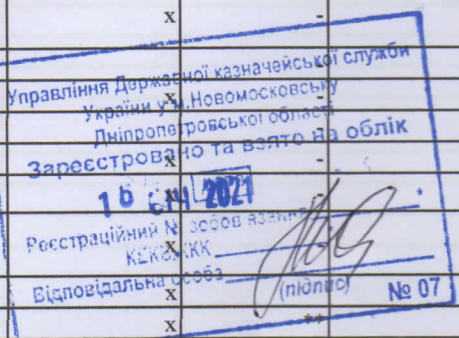 x -
Управління Державної казначейської служби
України у м.Новомосковську
Дніпропетровської області
Зареєстровано та взято на облік
16 2021
Реєстраційний №
Відповідальна особа
(підпис) № 07
x **